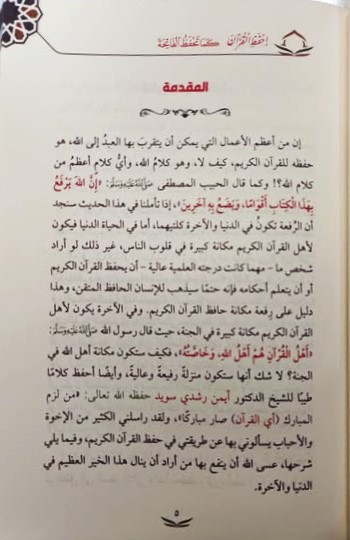 احفظ القرآن كما تحفظ الفاتحة
المقدمة
إن من أعظم الأعمال التي يمكن أن يتقرب بها العبدُ إلى الله، هو
حفظه للقرآن الكريم، كيف لا، وهو كلامُ الله، وأيُّ كلامٍ أعظمُ من
كلام الله؟!! وكما قال الحبيب المصطفى ﷺ: «إِنَّ اللهَ يَرْفَعُ
بِهَذَا الْكِتَابِ أَقْوَامًا، وَيَضَعُ بِهِ آخَرِينَ»، إذا تأملنا في هذا الحديث سنجد
أن الرِّفعة تكونُ في الدنيا والآخرة كلتيهما، أما في الحياة الدنيا فيكون
لأهل القرآن الكريم مكانة كبيرة في قلوب الناس، غير ذلك لو أراد
شخص ما - مهما كانت درجته العلمية عالية - أن يحفظ القرآن الكريم
أو أن يتعلم أحكامه فإنه حتمًا سيذهب للإنسان الحافظ المتقن، وهذا
دليل على رِفعة مكانة حافظ القرآن الكريم. وفي الآخرة يكون لأهل
القرآن الكريم مكانة كبيرة في الجنة، حيث قال رسول الله ﷺ:
«أَهْلُ الْقُرْآنِ هُمْ أَهْلُ اللهِ، وَخَاصَّتُهُ»، فكيف ستكون مكانة أهل الله في
الجنة؟ لا شك أنها ستكون منزلةً رفيعةً وعاليةً، وأيضًا أحفظ كلامًا
طيبًا للشيخ الدكتور أيمن رشدي سويد حفظه الله تعالى: «من لزم
المبارك (أي القرآن) صار مباركًا»، ولقد راسلني الكثير من الإخوة
والأحباب يسألوني بها عن طريقتي في حفظ القرآن الكريم، وفيما يلي
شرحها، عسى الله أن ينفع بها من أراد أن ينال هذا الخير العظيم في
الدنيا والآخرة.
٥